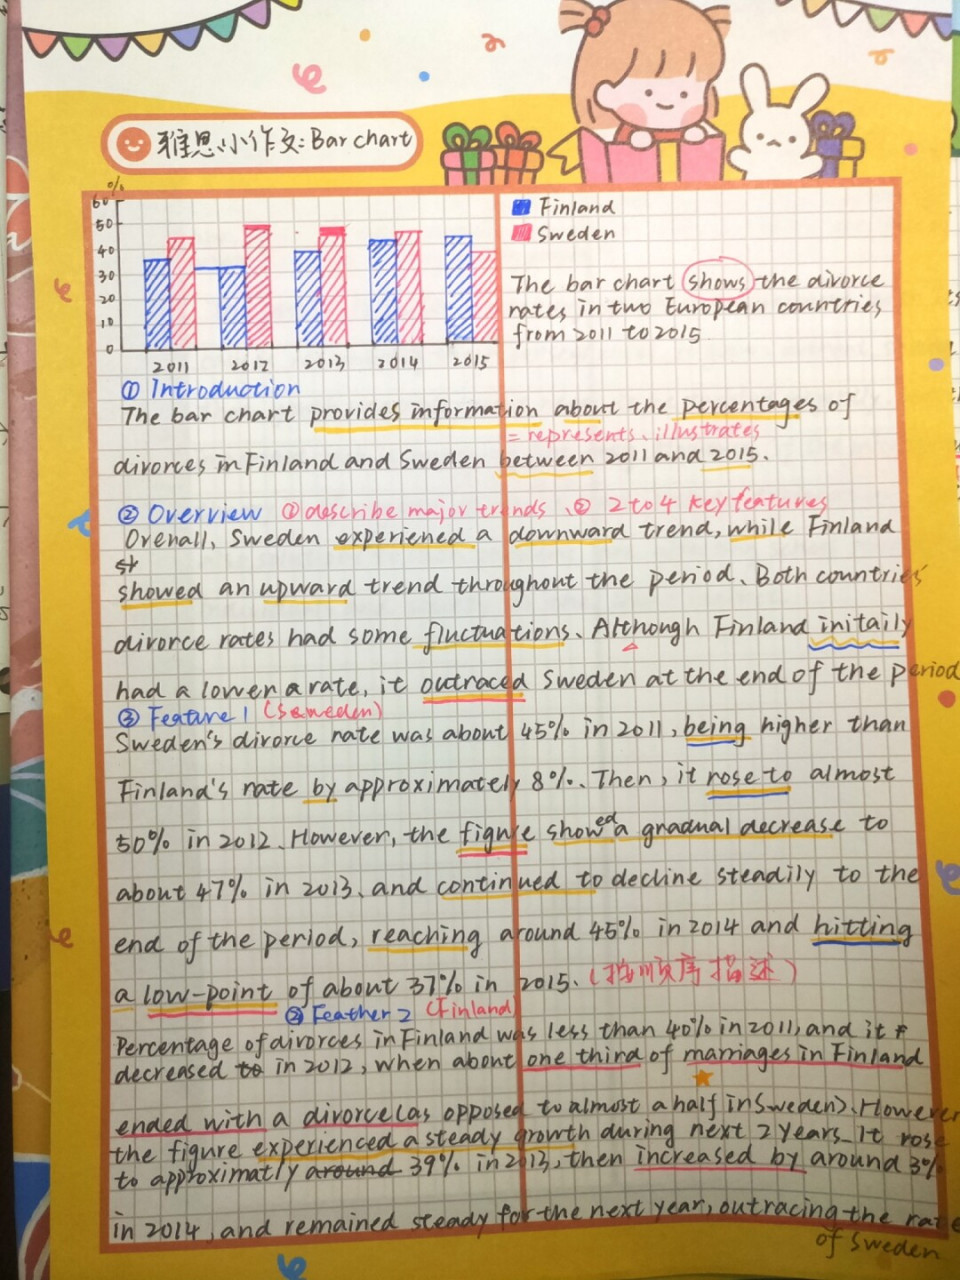 雅思小作文:Bar chart
%
60
50
40
30
20
10
0
2011 2012 2013 2014 2015
Finland
Sweden
The bar chart shows the divorce
rates in two European countries
from 2011 to 2015
① Introduction
The bar chart provides information about the percentages of
= represents、illustrates
divorces in Finland and Sweden between 2011 and 2015.
② Overview ①describe major trends、② 2 to 4 key features
Overall, Sweden experiened a downward trend, while Finland
st
showed an upward trend throughout the period. Both countries'
divorce rates had some fluctuations. Although Finland initaily
had a lower a rate, it outraced Sweden at the end of the period
③ Feature 1 (Saweden)
Sweden's divorce rate was about 45% in 2011, being higher than
Finland's rate by approximately 8%. Then, it rose to almost
50% in 2012. However, the figure showed a gradual decrease to
about 47% in 2013, and continued to decline steadily to the
end of the period, reaching around 45% in 2014 and hitting
a low-point of about 37% in 2015. (按顺序描述)
② Feather 2 (Finland)
Percentage of divorces in Finland was less than 40% in 2011, and it
decreased to in 2012, when about one third of marriages in Finland
ended with a divorce (as opposed to almost a half in Sweden). However
the figure experienced a steady growth during next 2 years. It rose
to approximatly around 39% in 2013, then increased by around 3%
in 2014, and remained steady for the next year, outracing the rate
of Sweden